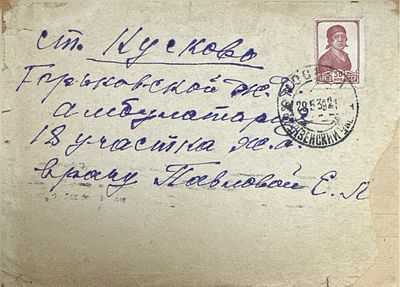 ст. Кусково
Горьковской ж. д.
амбулатория
18 участка ж.д.
врачу Павловой Е. П